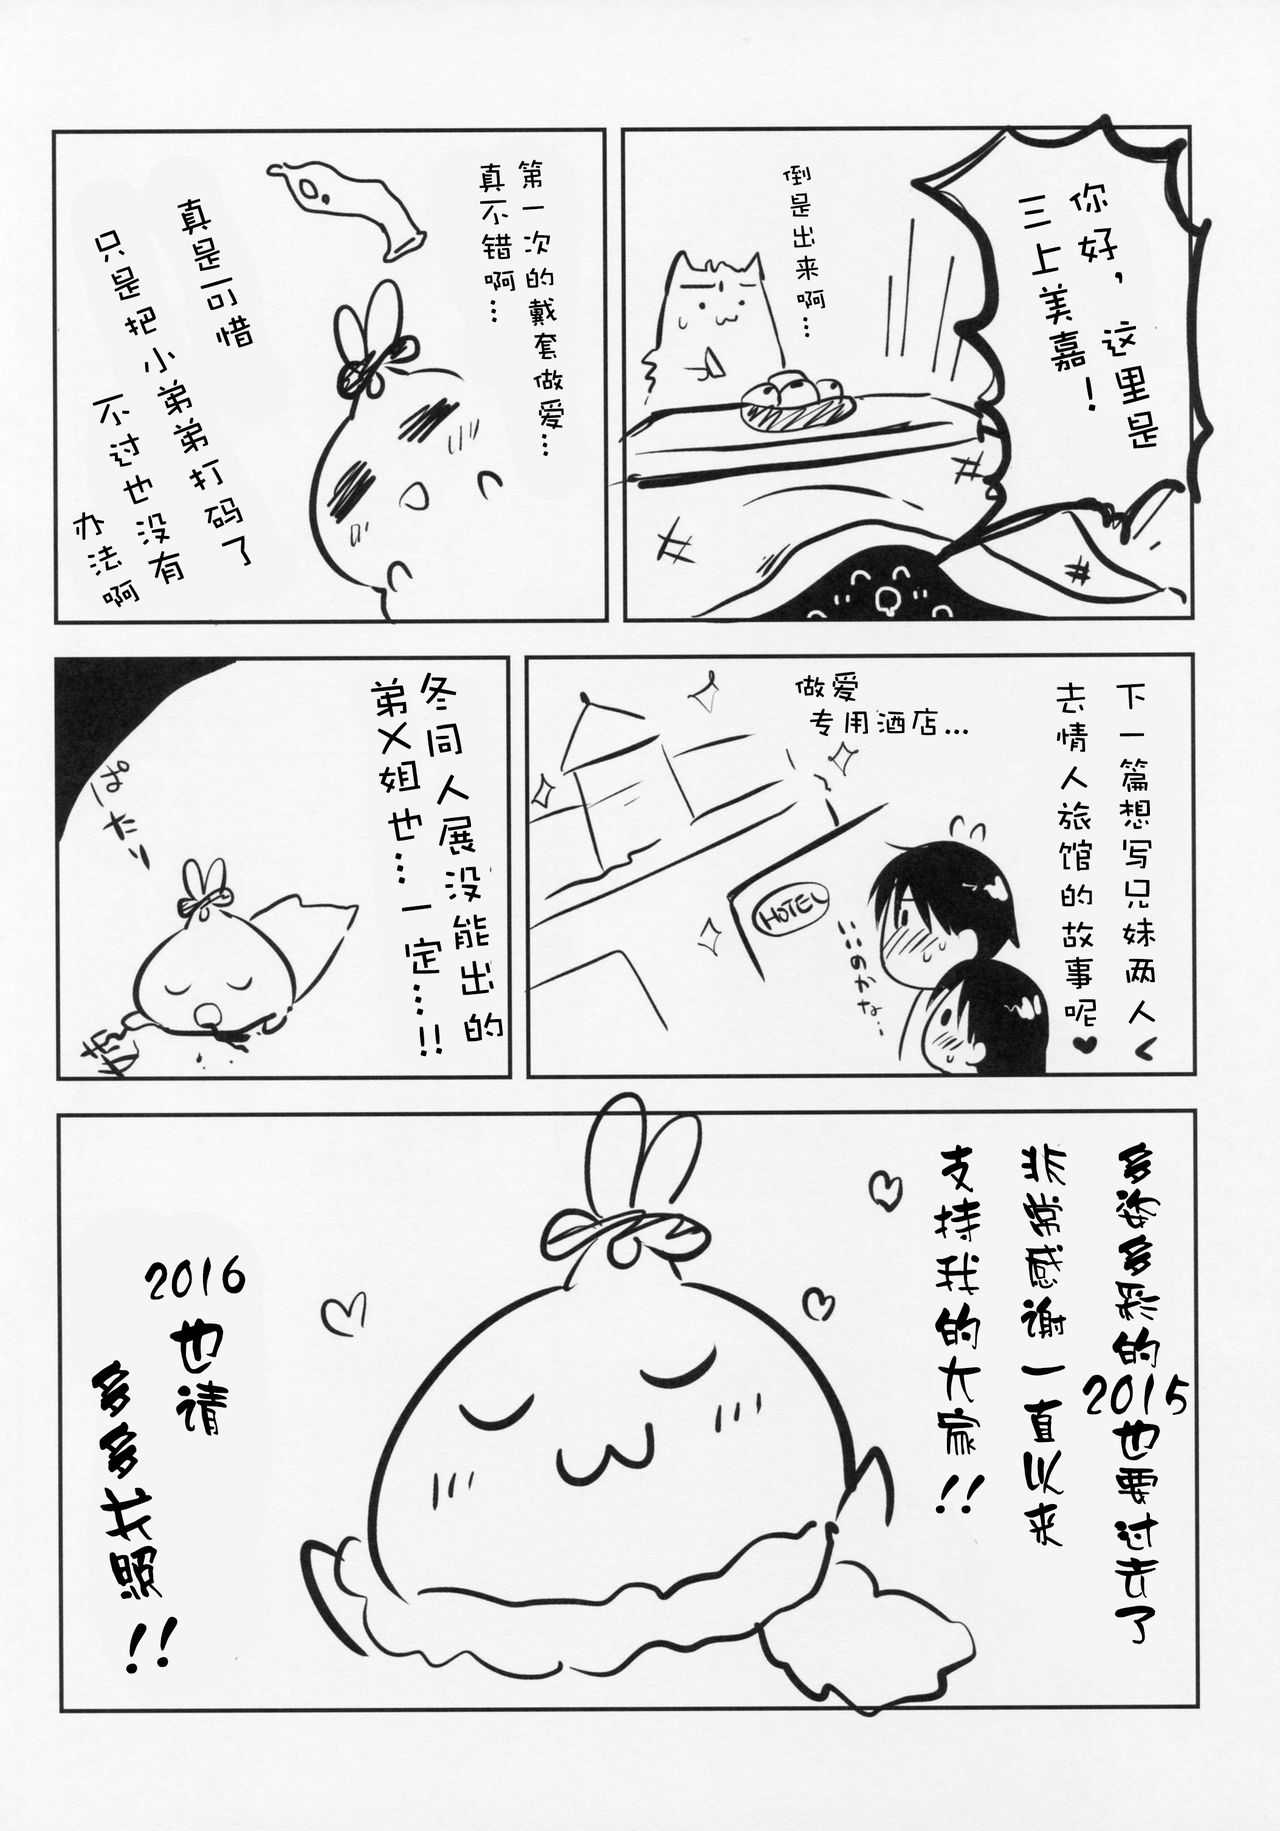 你好，这里是
三上美嘉！
倒是出来啊…
第一次的戴套做爱…
真不错啊…
真是可惜
只是把小弟弟打码了
不过也没有
办法啊
下一篇想写兄妹两人
去情人旅馆的故事呢♥
做爱
专用酒店…
HOTEL
いいのかな…
冬同人展没能出的
弟X姐也…一定…!!
ぱたり
多姿多彩的
2015也要过去了
非常感谢一直以来
支持我的大家!!
2016
也请
多多关照!!